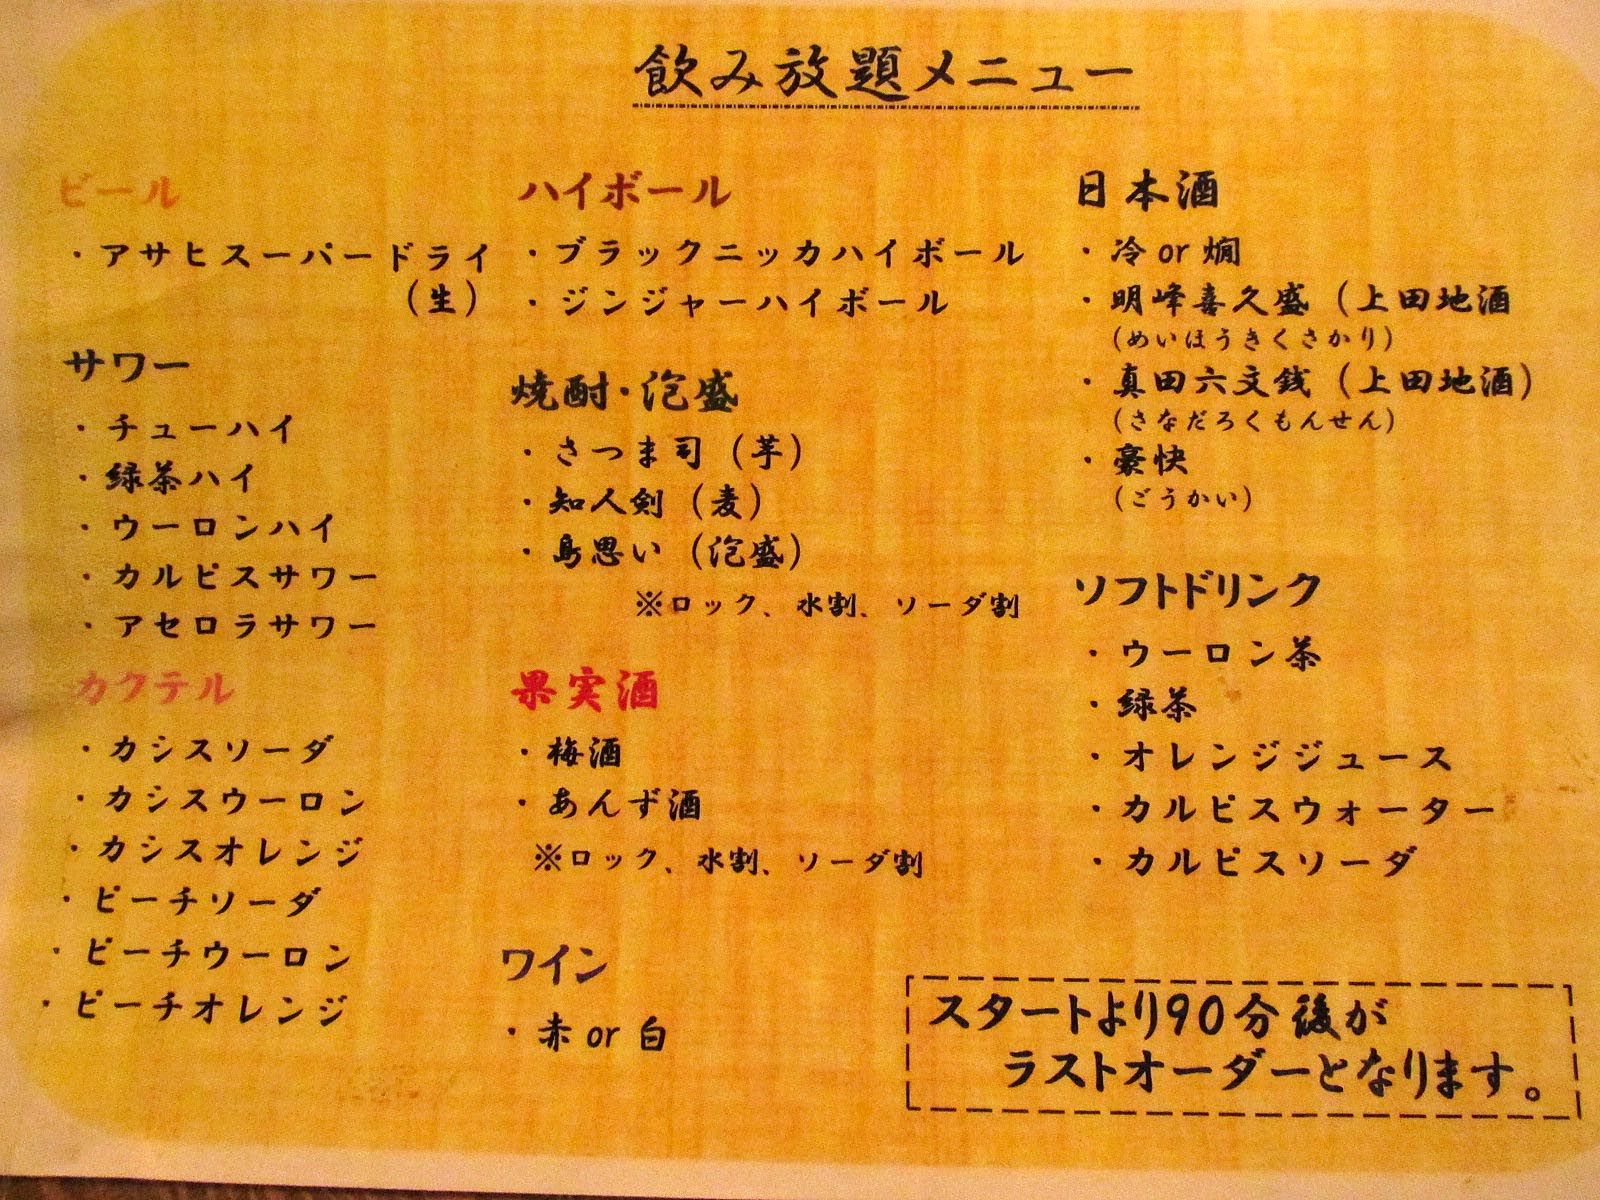 飲み放題メニュー
ビール
・アサヒスーパードライ
（生）
サワー
・チューハイ
・緑茶ハイ
・ウーロンハイ
・カルピスサワー
・アセロラサワー
カクテル
・カシスソーダ
・カシスウーロン
・カシスオレンジ
・ピーチソーダ
・ピーチウーロン
・ピーチオレンジ
ハイボール
・ブラックニッカハイボール
・ジンジャーハイボール
焼酎・泡盛
・さつま司（芋）
・知人剣（麦）
・島思い（泡盛）
※ロック、水割、ソーダ割
果実酒
・梅酒
・あんず酒
※ロック、水割、ソーダ割
ワイン
・赤 or 白
日本酒
・冷 or 燗
・明峰喜久盛（上田地酒
（めいほうきくさかり）
・真田六文銭（上田地酒）
（さなだろくもんせん）
・豪快
（ごうかい）
ソフトドリンク
・ウーロン茶
・緑茶
・オレンジジュース
・カルピスウォーター
・カルピスソーダ
スタートより90分後が
ラストオーダーとなります。